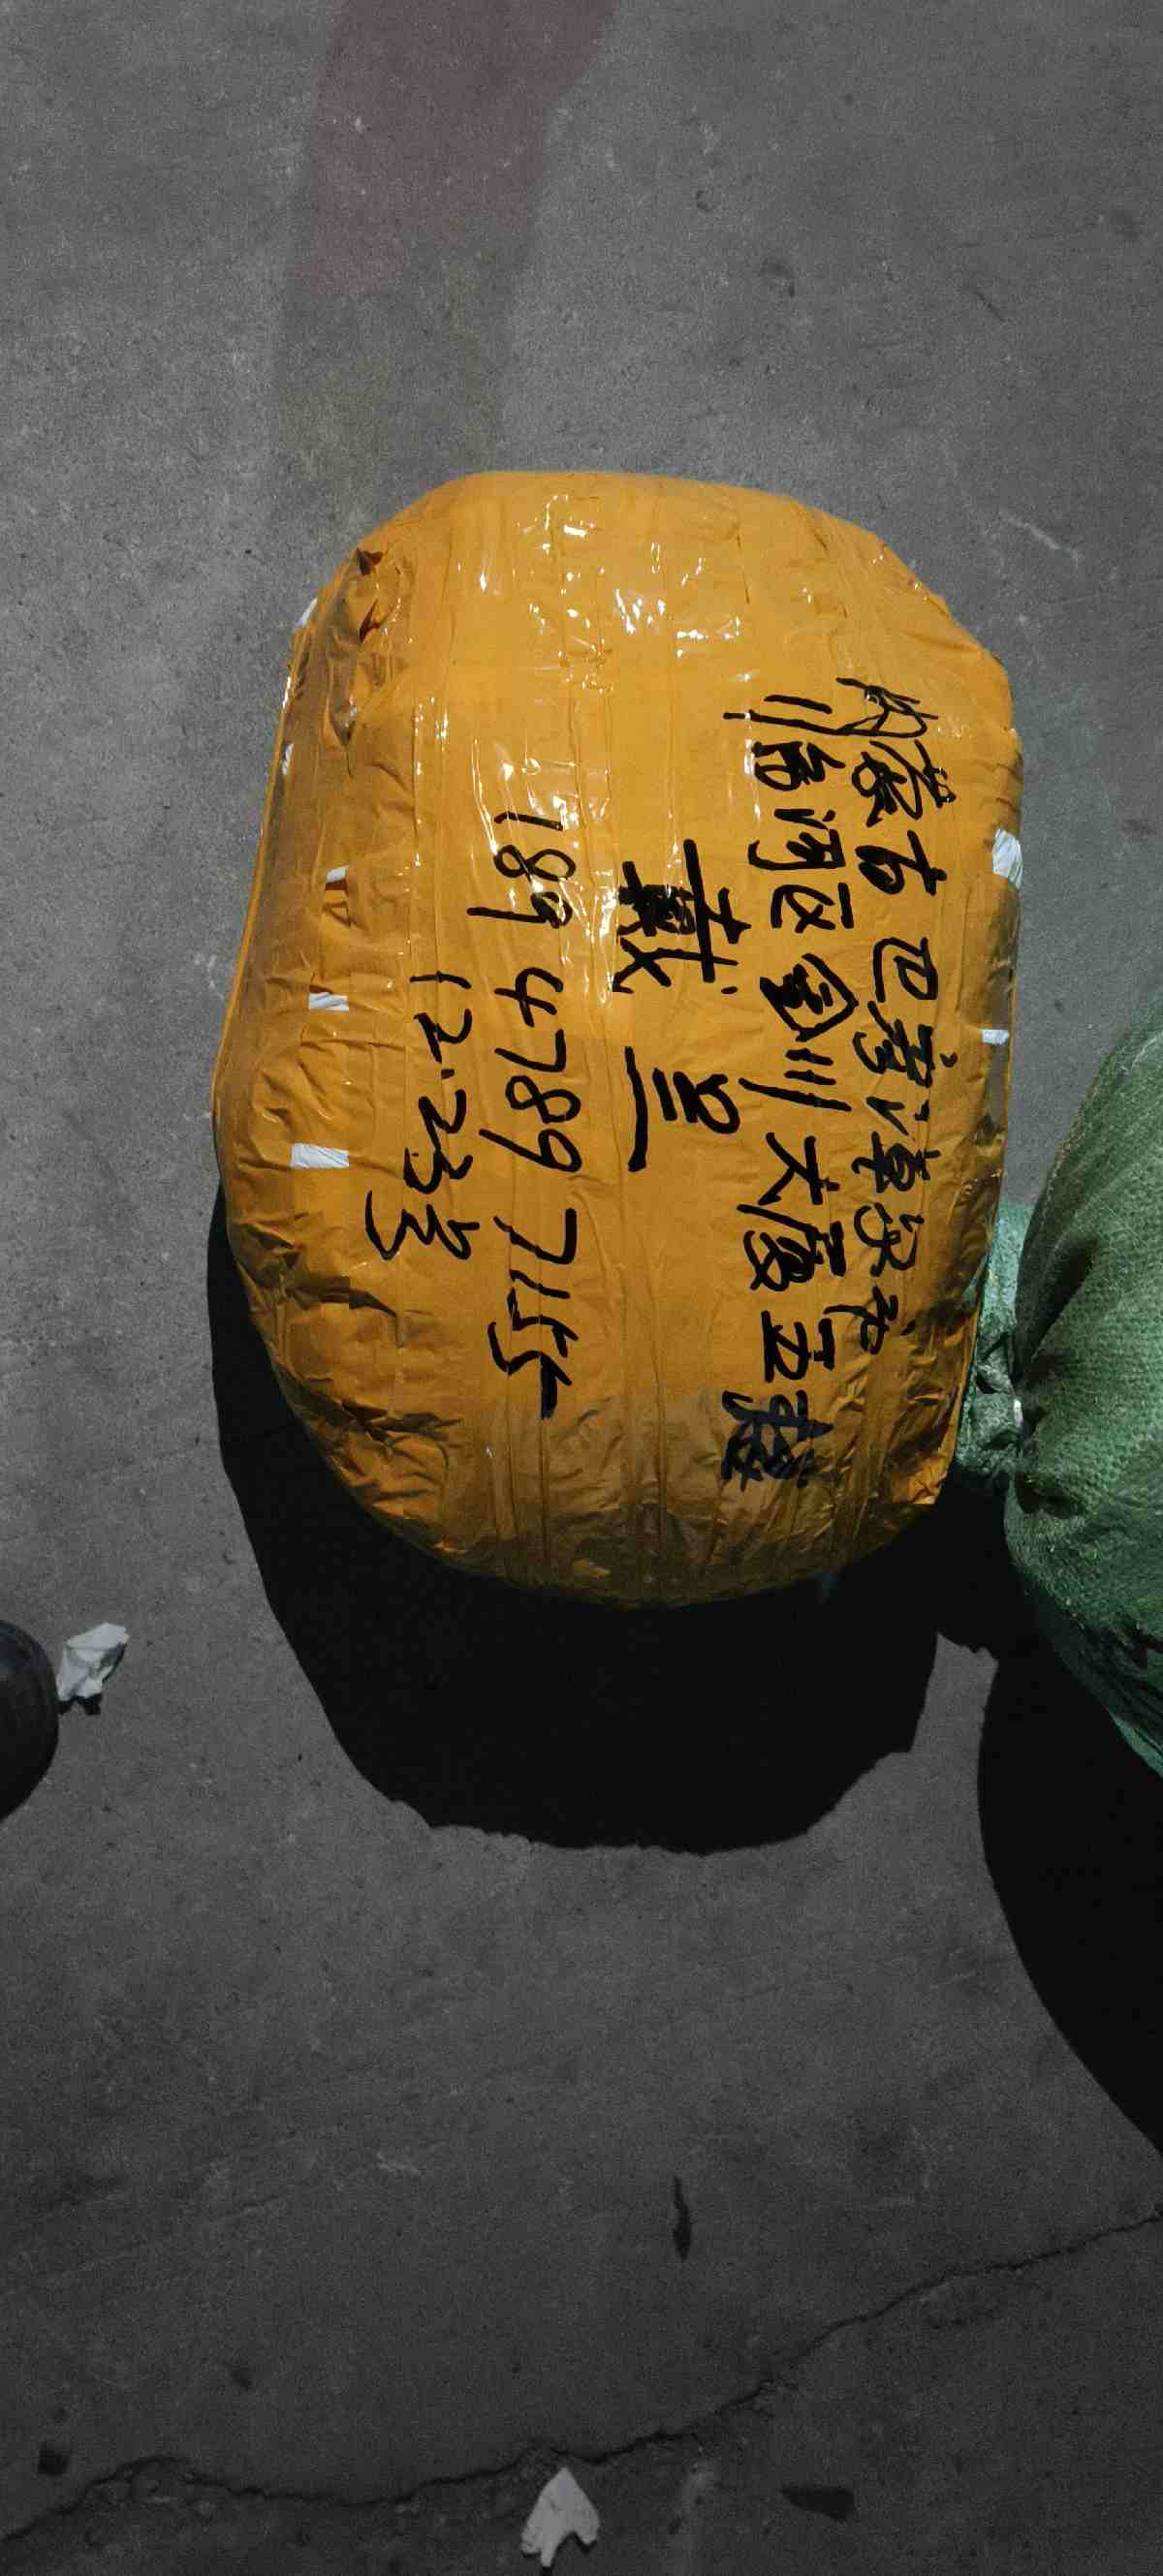 内蒙古巴彦淖尔市
临河区金川大厦五楼
戴
189 4789 7155
12.23号